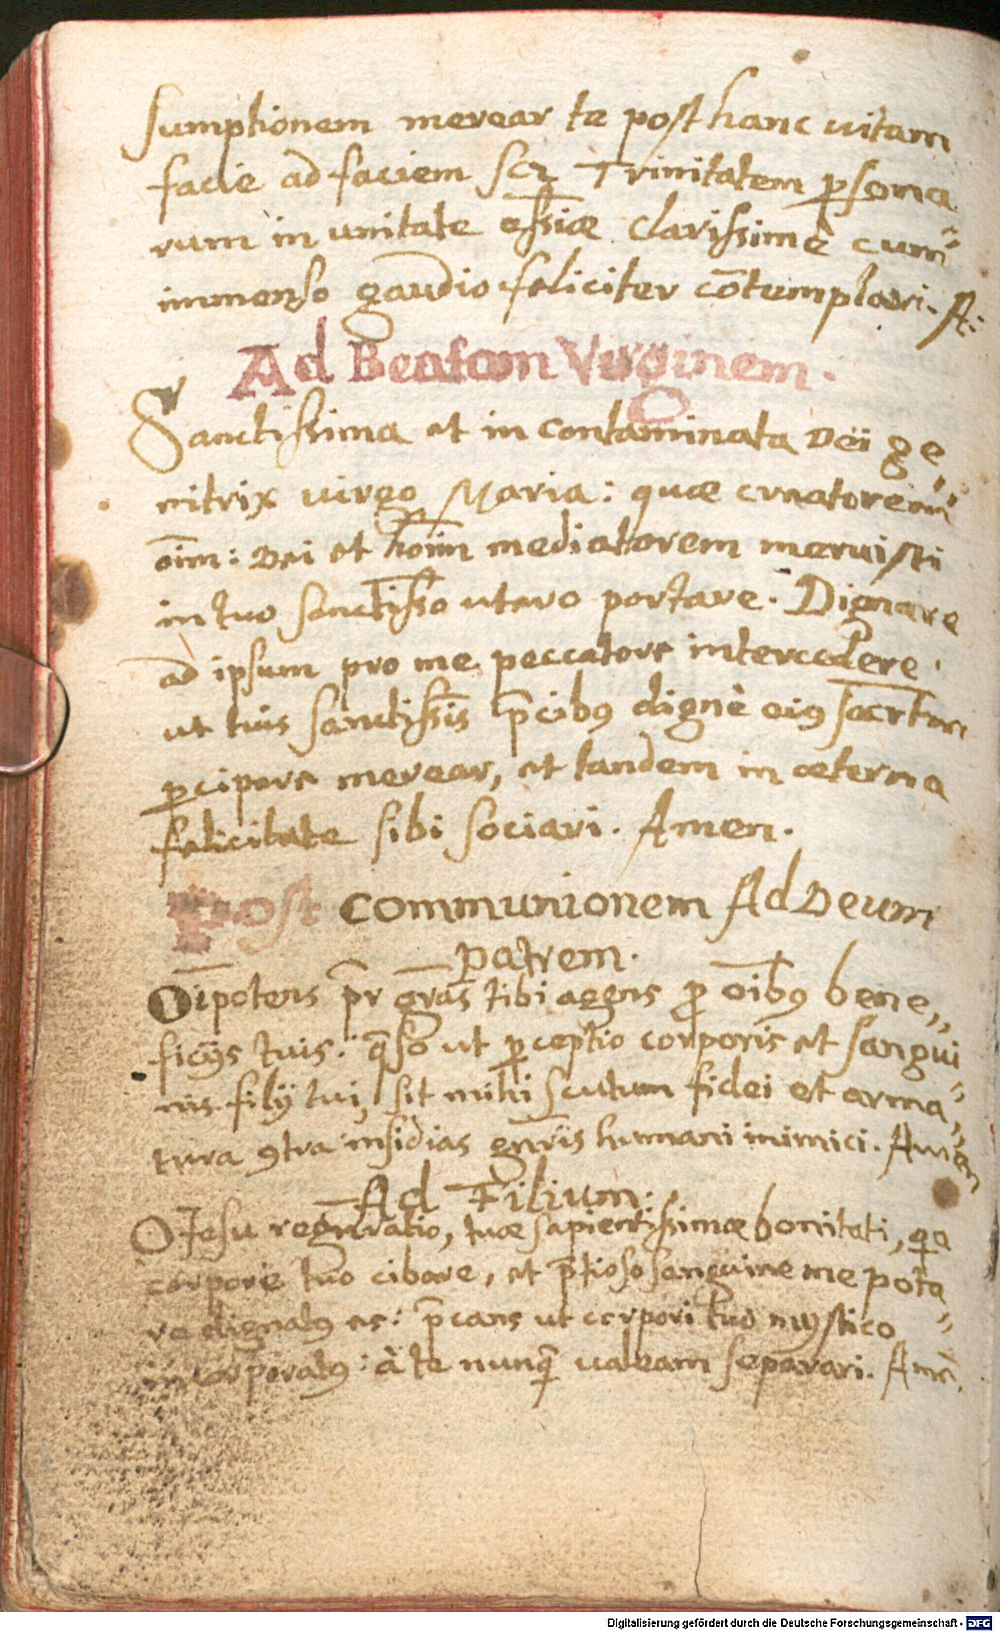 sumptionem merear te post hanc vitam
facie ad faciem scz Trinitatem p̱sona
rum in unitate essc̄iæ clarissimè cum
immenso gaudio feliciter cōtemplari. A:
Ad Beatam Virginem.
Sanctissima et in contaminata Dei ge„
nitrix virgo Maria: quæ creatorem
oīm: Dei et hoīm mediatorem meruisti
in tuo sanctisso utero portare. Dignare
ad ipsum pro me peccatore intercedere.
ut tuis sanctissis p̄cibꝰ dignè eiꝰ
p̱cipere merear, et tandem in æterna
felicitate sibi sociari. Amen.
Post communionem Ad Deum
patrem.
Oīpotens p̄r grās tibi agens ꝓ oībꝰ bene„
ficijs tuis. q̄so ut p̱ceptio corporis et sangui„
nis filij tui, sit mihi scutum fidei et arma„
tura ꝯtra insidias gn̄ris humani inimici. Amen
Ad Filium.
O Iesu regn̄ratio, tuæ sapientissimæ bonitati, qia
corpore tuo cibare, et p̄tioso sanguine me pota„
re dignatꝰ es: p̄cans ut corpori tuo mystico
incorporatꝰ: à te nunq̄ valeam separari. Amē.
Digitalisierung gefördert durch die Deutsche Forschungsgemeinschaft - DFG